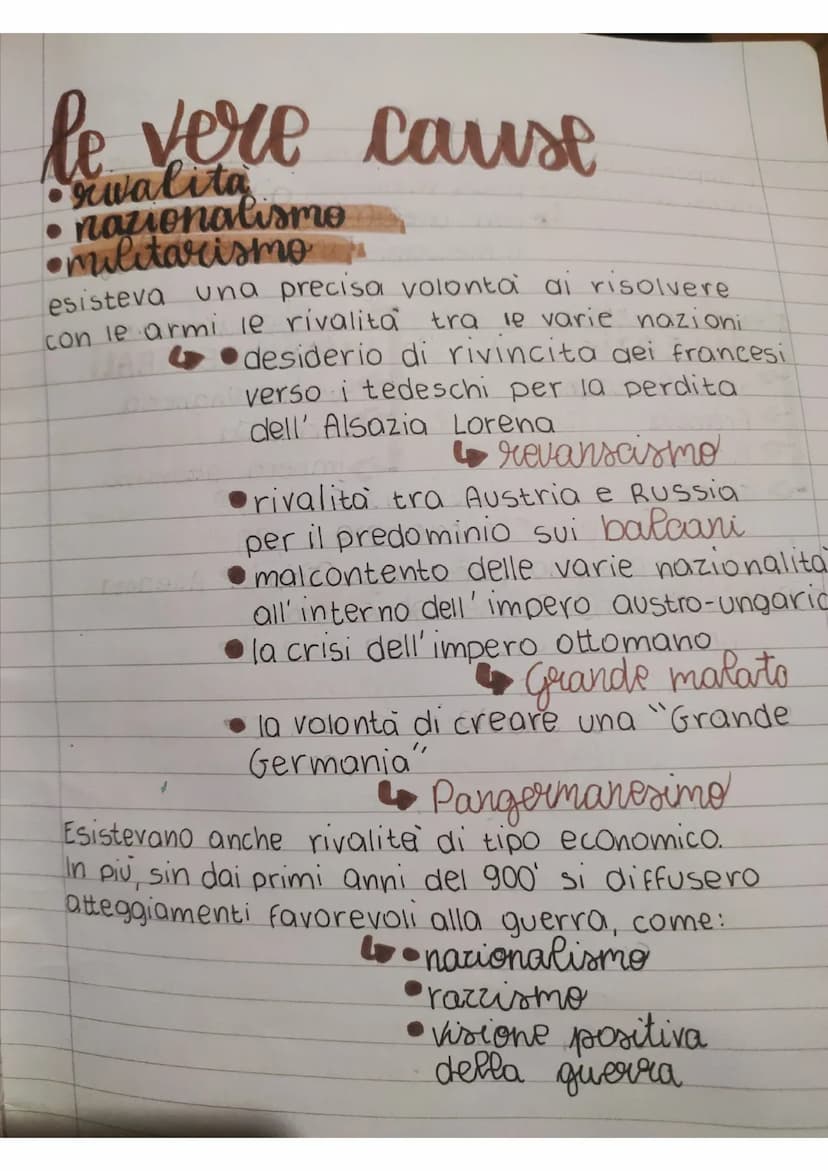 le vere cause
• rivalità
• nazionalismo
• militarismo
esisteva una precisa volontà di risolvere
con le armi le rivalità tra le varie nazioni
↳ • desiderio di rivincita dei francesi
verso i tedeschi per la perdita
dell' Alsazia Lorena
↳ revanscismo
• rivalità tra Austria e Russia
per il predominio sui balcani
• malcontento delle varie nazionalità
all'interno dell'impero austro-ungaric
• la crisi dell'impero ottomano
↳ Grande malato
• la volontà di creare una "Grande
Germania"
↳ Pangermanesimo
Esistevano anche rivalità di tipo economico.
In più, sin dai primi anni del 900' si diffusero
atteggiamenti favorevoli alla guerra, come:
↳ • nazionalismo
• razzismo
• visione positiva
della guerra